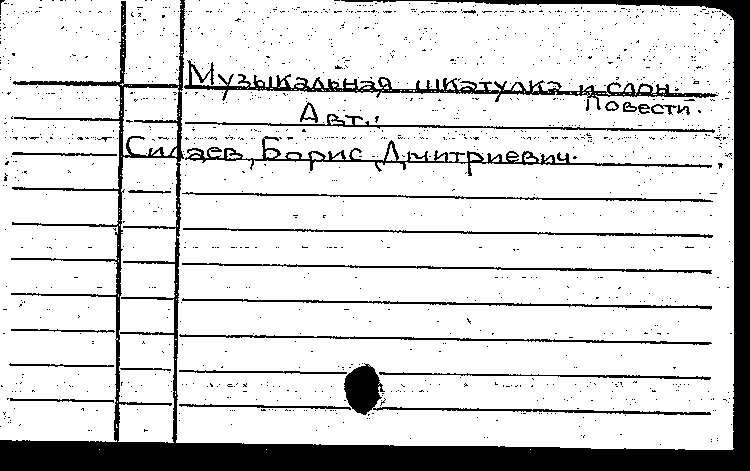 Музыкальная шкатулка и слон.
Повести.
Авт.:
Силаев, Борис Дмитриевич.